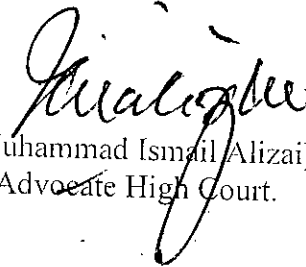 uhammad Ismail Alizai
Advocate High Court.